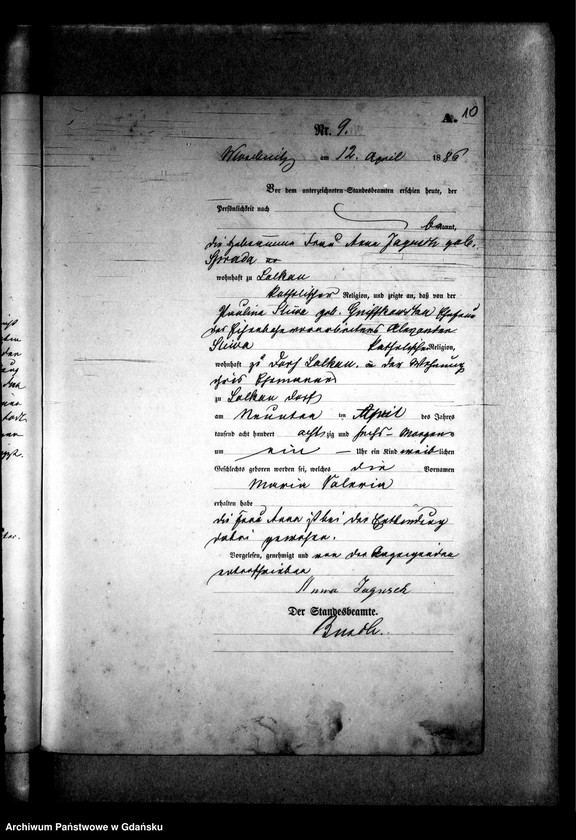 A. 10
Nr. 9.
am 12. April 1886
Vor dem unterzeichneten Standesbeamten erschien heute, der
Persönlichkeit nach
kannt,
die Hebamme Frau Anna Jagusch geb.
wohnhaft zu Lalkau
katholischer Religion, und zeigte an, daß von der
Pauline Sliwa geb. Ehefrau
des Eisenbahnvorarbeiters Alexander
Sliwa katholischer Religion,
wohnhaft zu Dorf Lalkau, in der Wohnung
ihres Ehemannes
zu Lalkau Dorf
am Neunten ten April des Jahres
tausend acht hundert achtzig und sechs Morgens
um ein Uhr ein Kind weiblichen
Geschlechts geboren worden sei, welches die Vornamen
Maria Valeria
erhalten habe
die Frau Anna ist bei der Entbindung
dabei gewesen.
Vorgelesen, genehmigt und von der Anzeigenden
unterschrieben
Anna Jagusch
Der Standesbeamte.
Archiwum Państwowe w Gdańsku